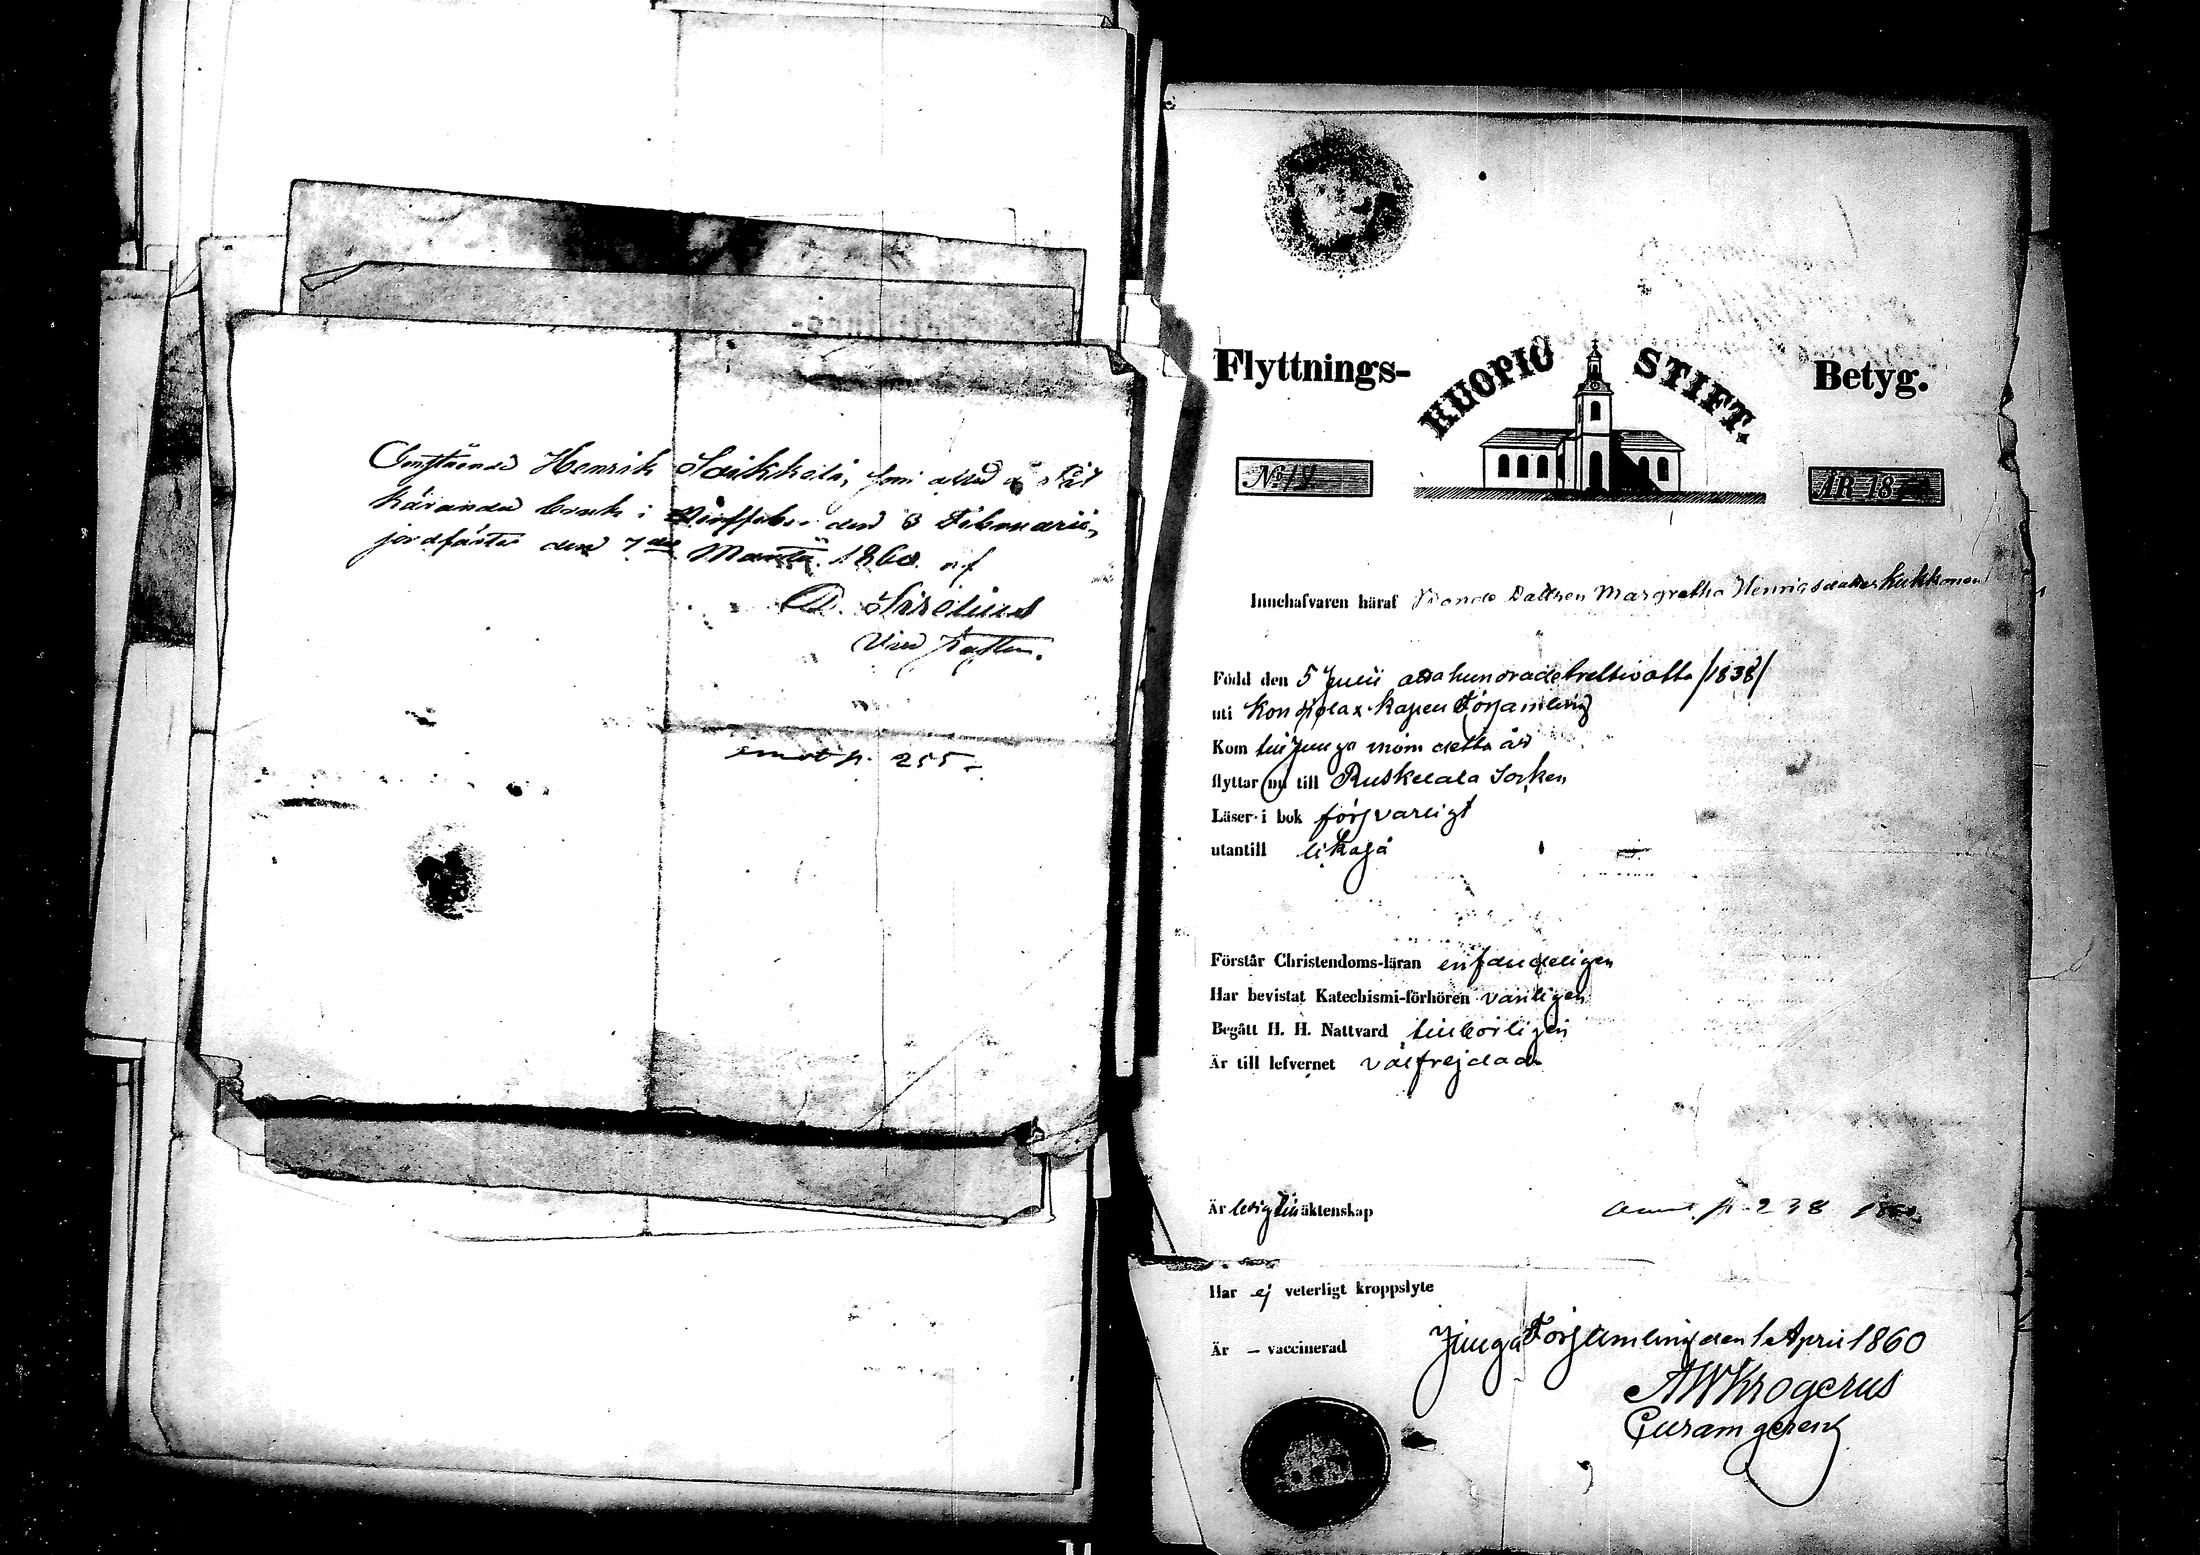 Omstående Henrik Saikkola, som afled
den 3 Februarii,
jordfästes den 7de 1860 af
Sirelius
Vice Pastor.
p. 255
Flyttnings-
KUOPIO STIFT.
Betyg.
No 
ÅR 18
Innehafvaren häraf Bonde Dattren Margretha Henricsdatter Kukkonen
Född den 5 Junii adahundradetrettioatta /1838/
uti Kondiolax Kapell Församling
Kom till Juuga inom detta år
flyttar nu till Ruskeala Socken
Läser i bok försvarligt
utantill likaså
Förstår Christendoms-läran enfaldeligen
Har bevistat Katechismi-förhören vanligen
Begått H. H. Nattvard tillbörligen
Är till lefvernet välfrejdad
Är ledig till äktenskap
p. 238
Har ej veterligt kroppslyte
Är – vaccinerad
Juuga Församling den 1 April 1860
AWKrogerus
Curam gerens